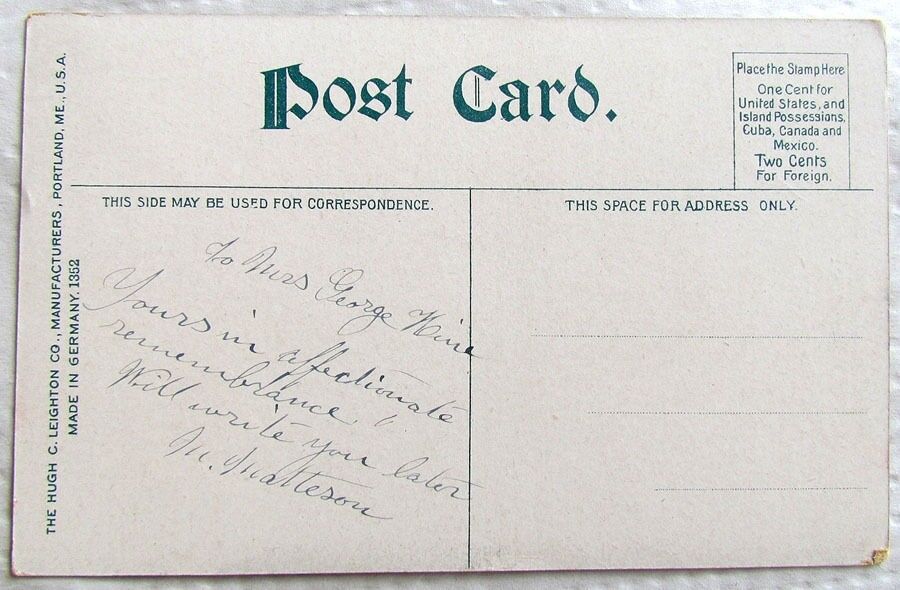 Post Card.
Place the Stamp Here
One Cent for
United States, and
Island Possessions,
Cuba, Canada and
Mexico.
Two Cents
For Foreign.
THE HUGH C. LEIGHTON CO., MANUFACTURERS, PORTLAND, ME., U.S.A.
MADE IN GERMANY. 1352
THIS SIDE MAY BE USED FOR CORRESPONDENCE.
THIS SPACE FOR ADDRESS ONLY.
To Mrs George Hine
Yours in affectionate
remembrance.
Will write you later
M. Matteson